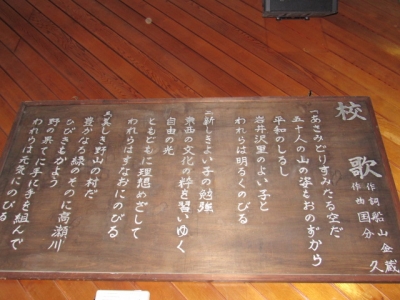 校歌
作詞 船山 金蔵
作曲 国分 久
一、あさみどりすみたる空だ
五十人の山の姿もおのずから
平和のしるし
岩井沢里のよい子と
われらは明るくのびる
二、新しきよい子の勉強
東西の文化の粋を習いゆく
自由の光
ともどもに理想めざして
われらはすなおにのびる
三、美しき野山の村だ
豊かなる緑のそのに高瀬川
ひびきもかよう
野の果てに手に手を組んで
われらは元気にのびる